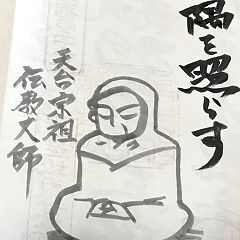 隅を照らす
天台宗祖
伝教大師